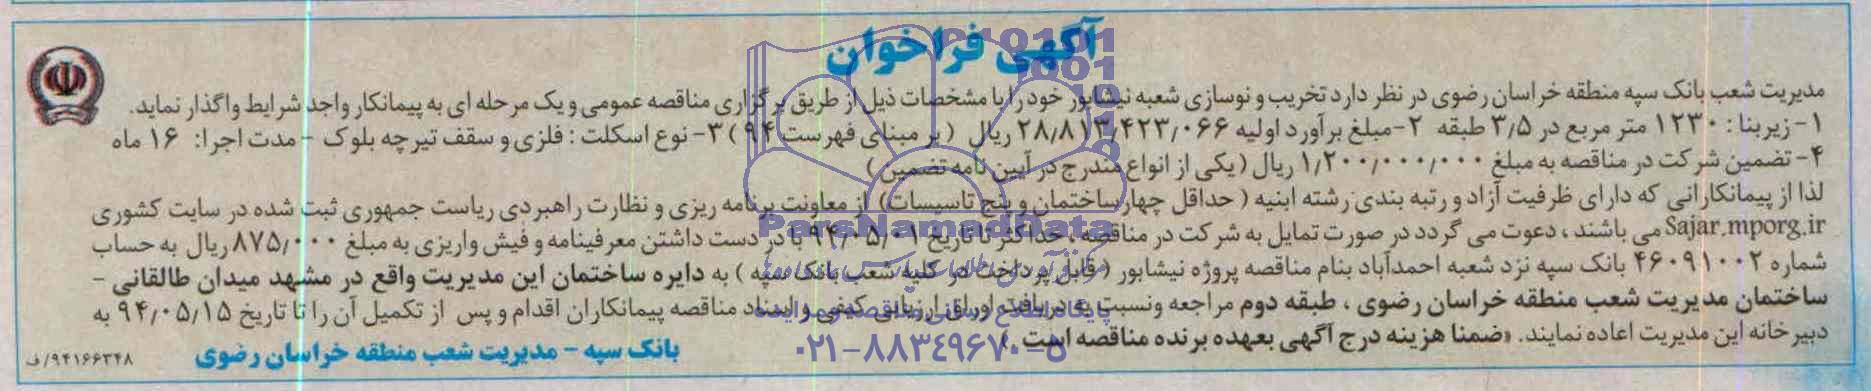 آگهی فراخوان
مدیریت شعب بانک سپه منطقه خراسان رضوی در نظر دارد تخریب و نوسازی شعبه نیشابور خود را با مشخصات ذیل از طریق برگزاری مناقصه عمومی و یک مرحله ای به پیمانکار واجد شرایط واگذار نماید.
۱- زیربنا: ۱۲۳۰ متر مربع در ۳/۵ طبقه ۲-مبلغ برآورد اولیه ۲۸/۸۱۳/۴۲۳/۰۶۶ ریال (بر مبنای فهرست ۹۴) ۳- نوع اسکلت: فلزی و سقف تیرچه بلوک - مدت اجرا: ۱۶ ماه
۴- تضمین شرکت در مناقصه به مبلغ ۱/۲۰۰/۰۰۰/۰۰۰ ریال (یکی از انواع مندرج در آیین نامه تضمین)
لذا از پیمانکارانی که دارای ظرفیت آزاد و رتبه بندی رشته ابنیه (حداقل چهار ساختمان و پنج تاسیسات) از معاونت برنامه ریزی و نظارت راهبردی ریاست جمهوری ثبت شده در سایت کشوری
Sajar.mporg.ir می باشند، دعوت می گردد در صورت تمایل به شرکت در مناقصه، حداکثر تا تاریخ ۹۴/۰۵/۰۱ با در دست داشتن معرفینامه و فیش واریزی به مبلغ ۸۷۵/۰۰۰ ریال به حساب
شماره ۴۶۰۹۱۰۰۲ بانک سپه نزد شعبه احمدآباد بنام مناقصه پروژه نیشابور (قابل پرداخت در کلیه شعب بانک سپه) به دایره ساختمان این مدیریت واقع در مشهد میدان طالقانی -
ساختمان مدیریت شعب منطقه خراسان رضوی، طبقه دوم مراجعه ونسبت به دریافت اوراق ارزیابی کیفی و اسناد مناقصه پیمانکاران اقدام و پس از تکمیل آن را تا تاریخ ۹۴/۰۵/۱۵ به
دبیرخانه این مدیریت اعاده نمایند. «ضمنا هزینه درج آگهی بعهده برنده مناقصه است.»
بانک سپه - مدیریت شعب منطقه خراسان رضوی
۹۴۱۶۶۳۴۸/ف
ParsNamadData
پایگاه اطلاع رسانی مناقصه و مزایده
۰۲۱-۸۸۳۴۹۶۷۰-۵